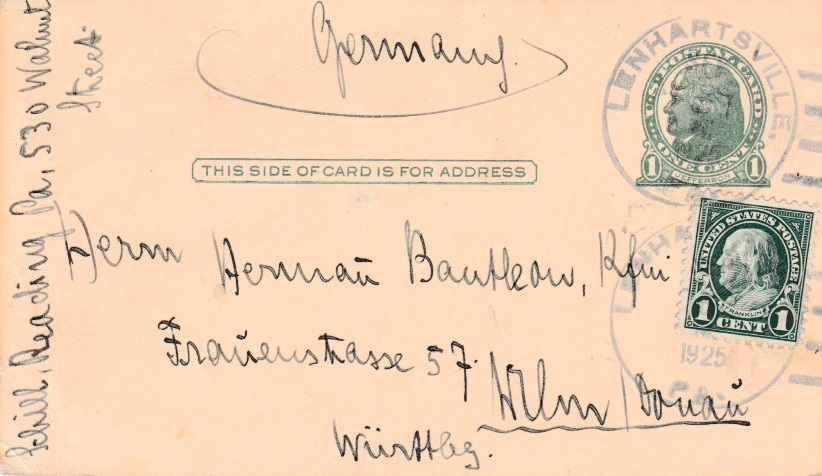 Germany.
LENHARTSVILLE,
U.S. POSTAL CARD
1925
1 ONE CENT 1
JEFFERSON
THIS SIDE OF CARD IS FOR ADDRESS
Schill, Reading Pa, 530 Walnut
Street.
Herrn Hermañ Bantleon, Kfm
Frauenstrasse 57.
Ulm/Donau
Württbg.
UNITED STATES POSTAGE
FRANKLIN
1 CENT 1
1925
PA.